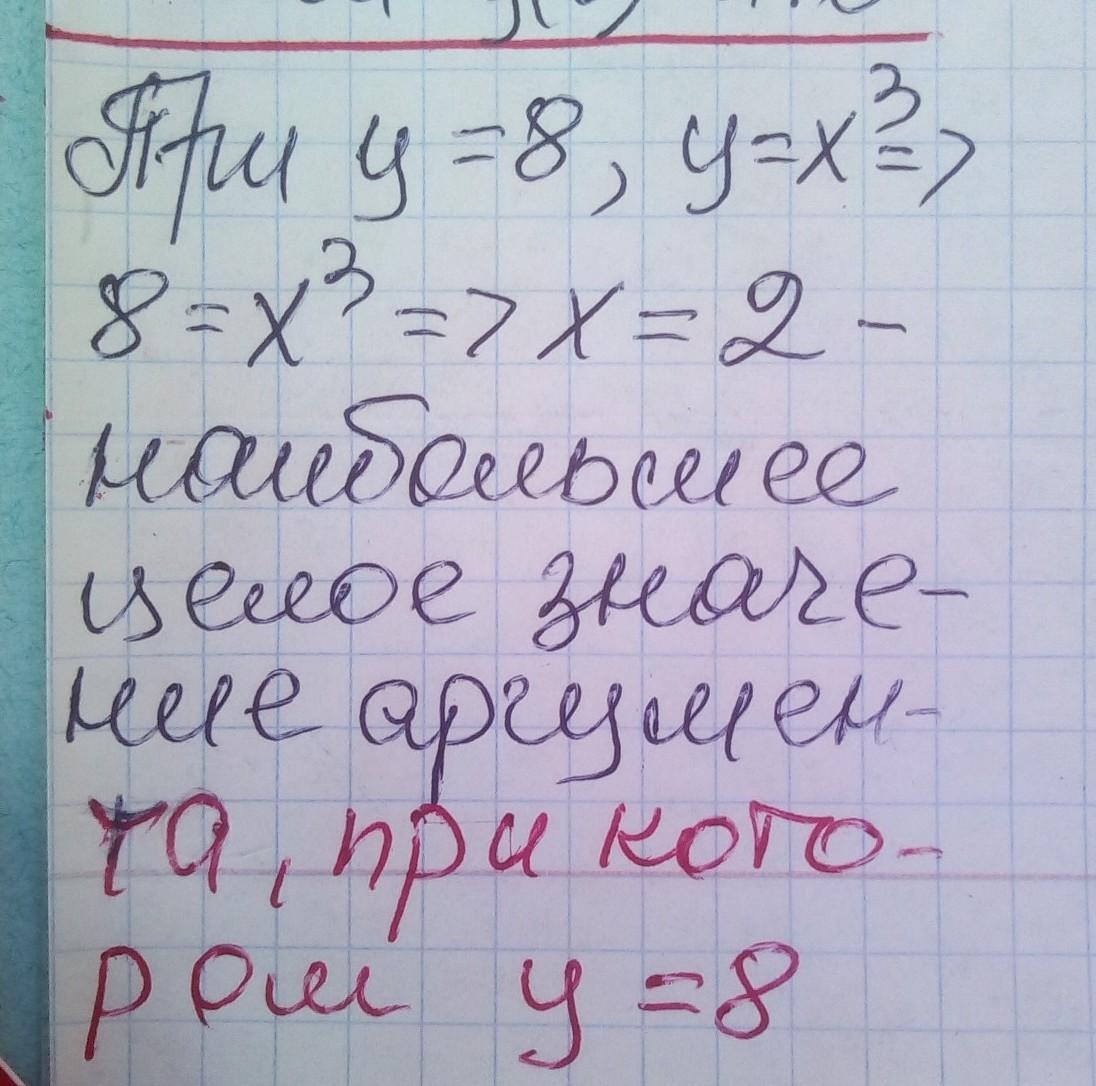 При y = 8, y = x³ =>
8 = x³ => x = 2 -
наибольшее
целое значе-
ние аргумен-
та, при кото-
ром y = 8